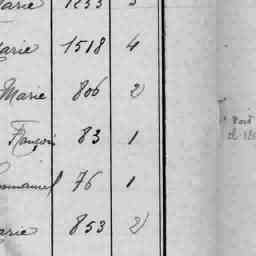 Marie 1233 3
Marie 1518 4
Marie 806 2
François 83 1
Emmanuel 76 1
Marie 853 2